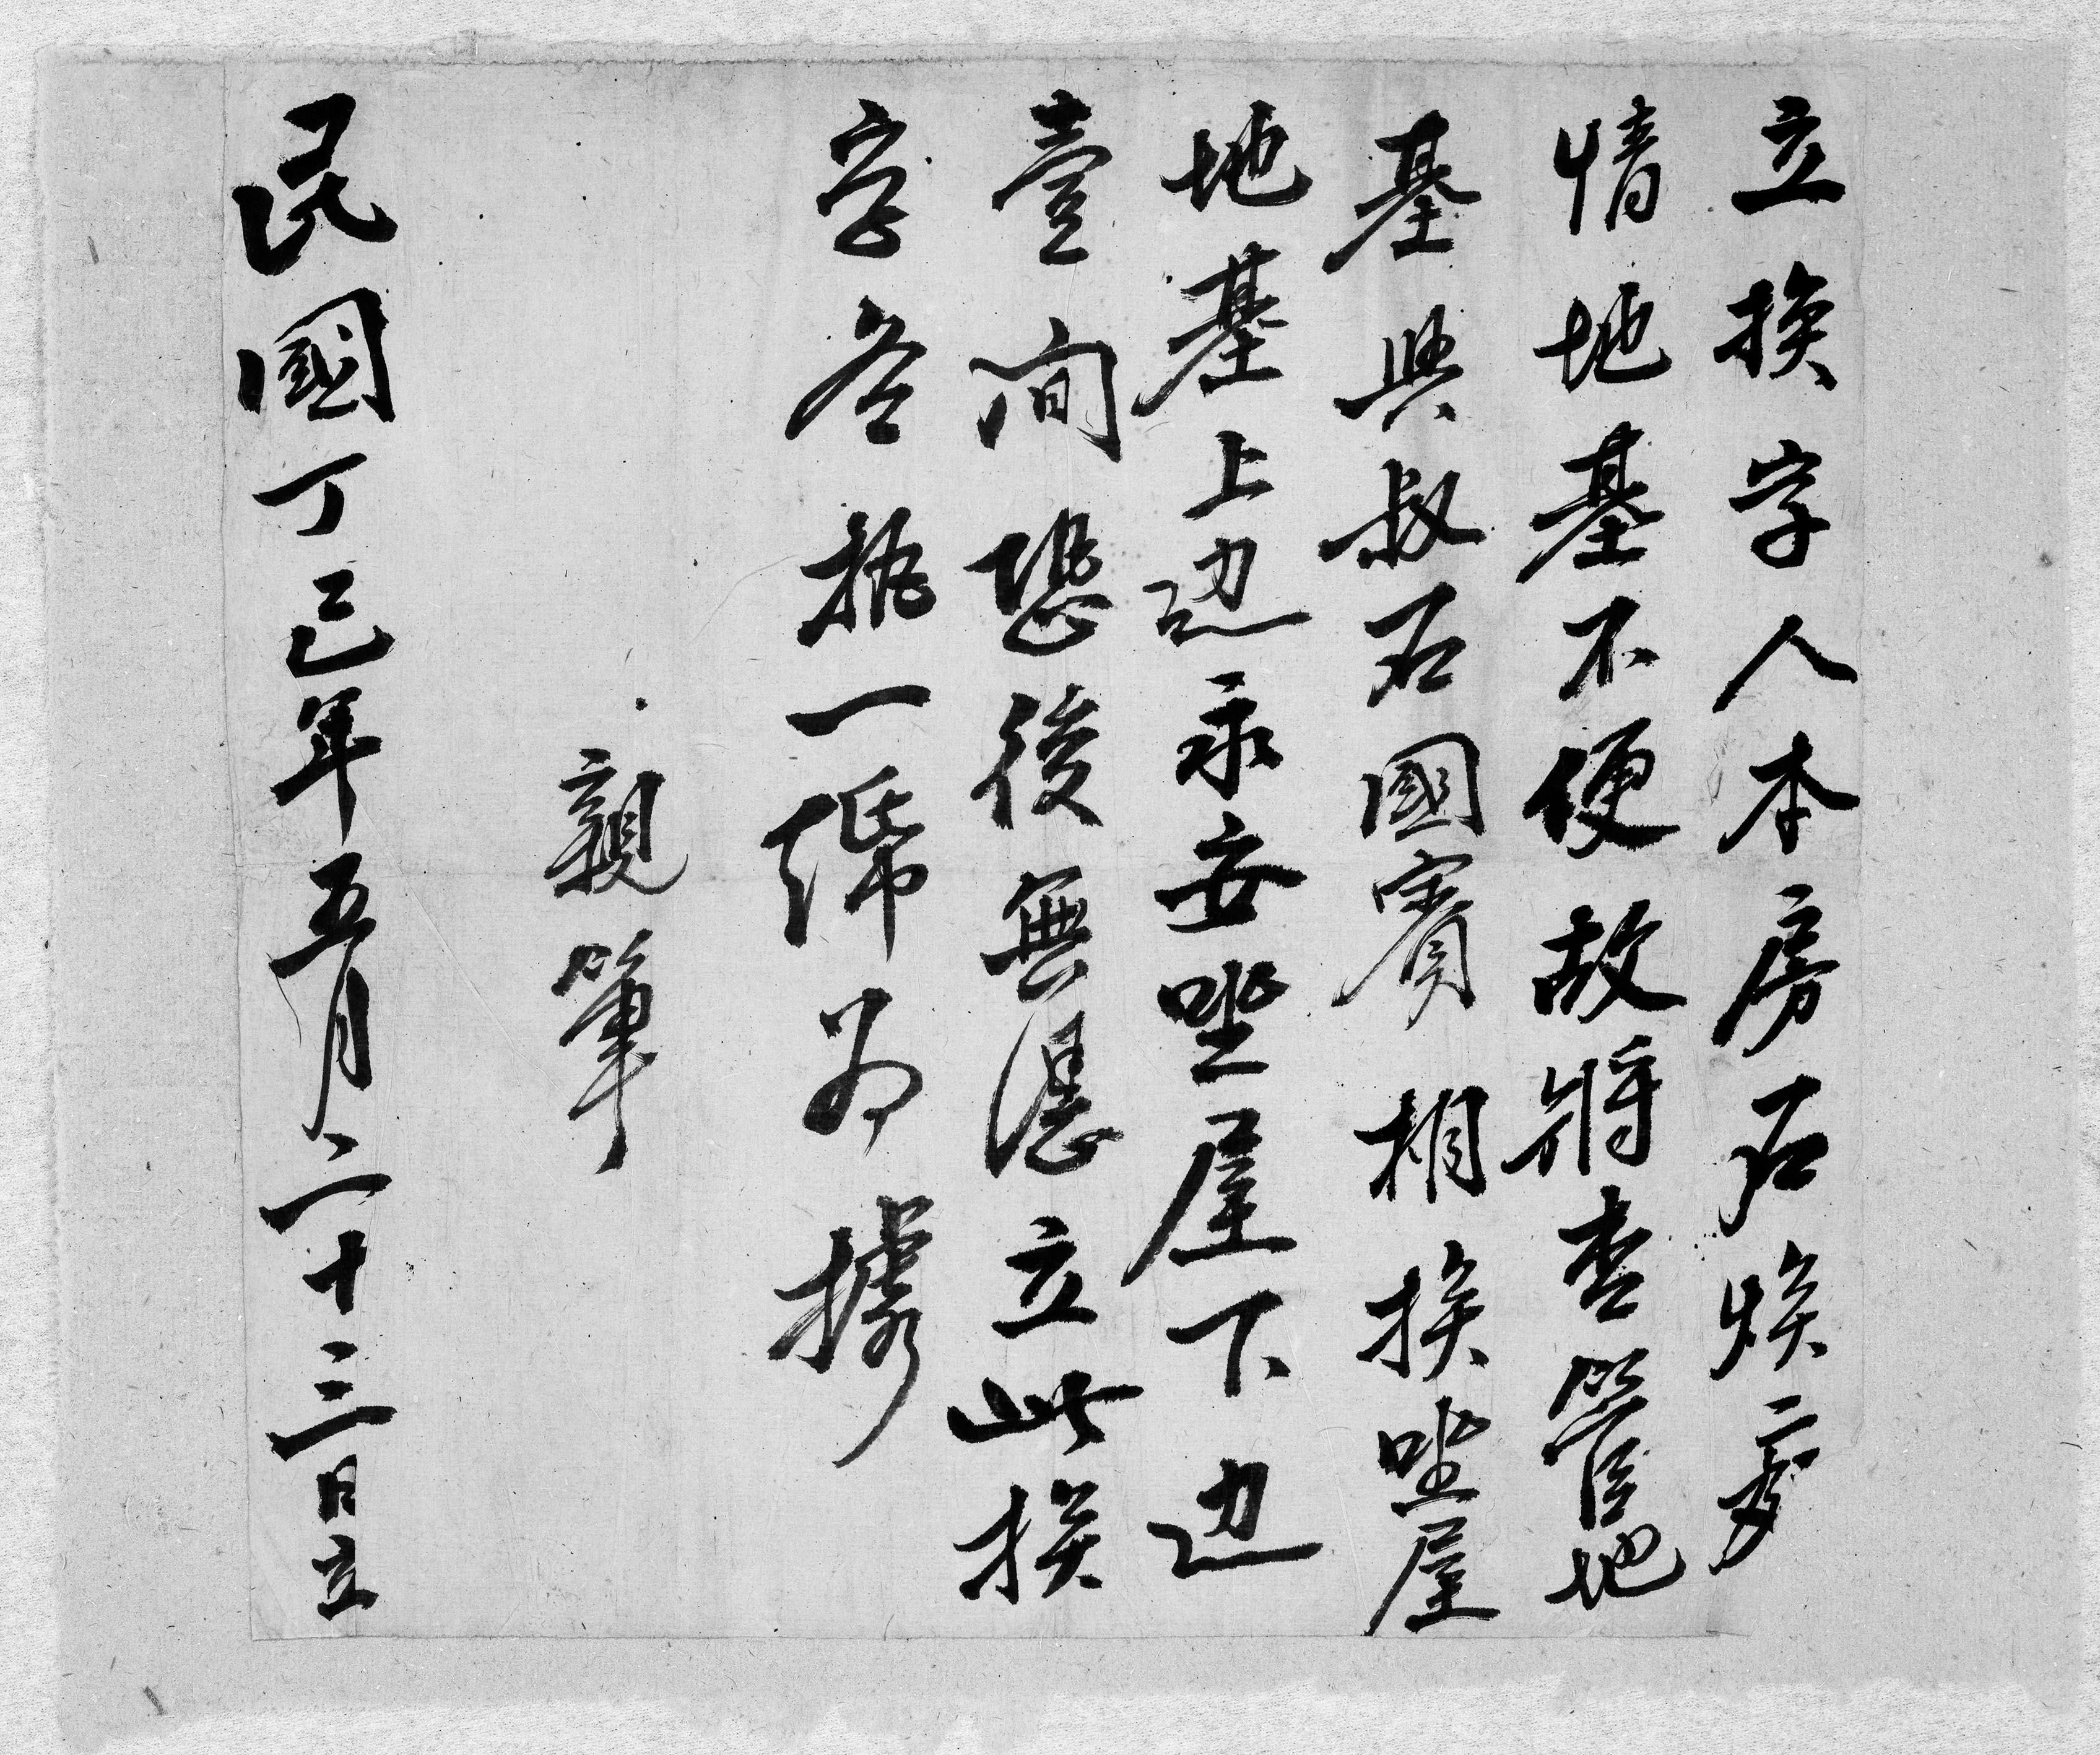 立換字人本房石煥彥
情地基不便故將壹管地
基與叔石國賓相換坐屋
地基上边永安坐屋下边
壹间恐後無憑立此换
字各执一纸为據
親筆
民國丁巳年五月二十三日立